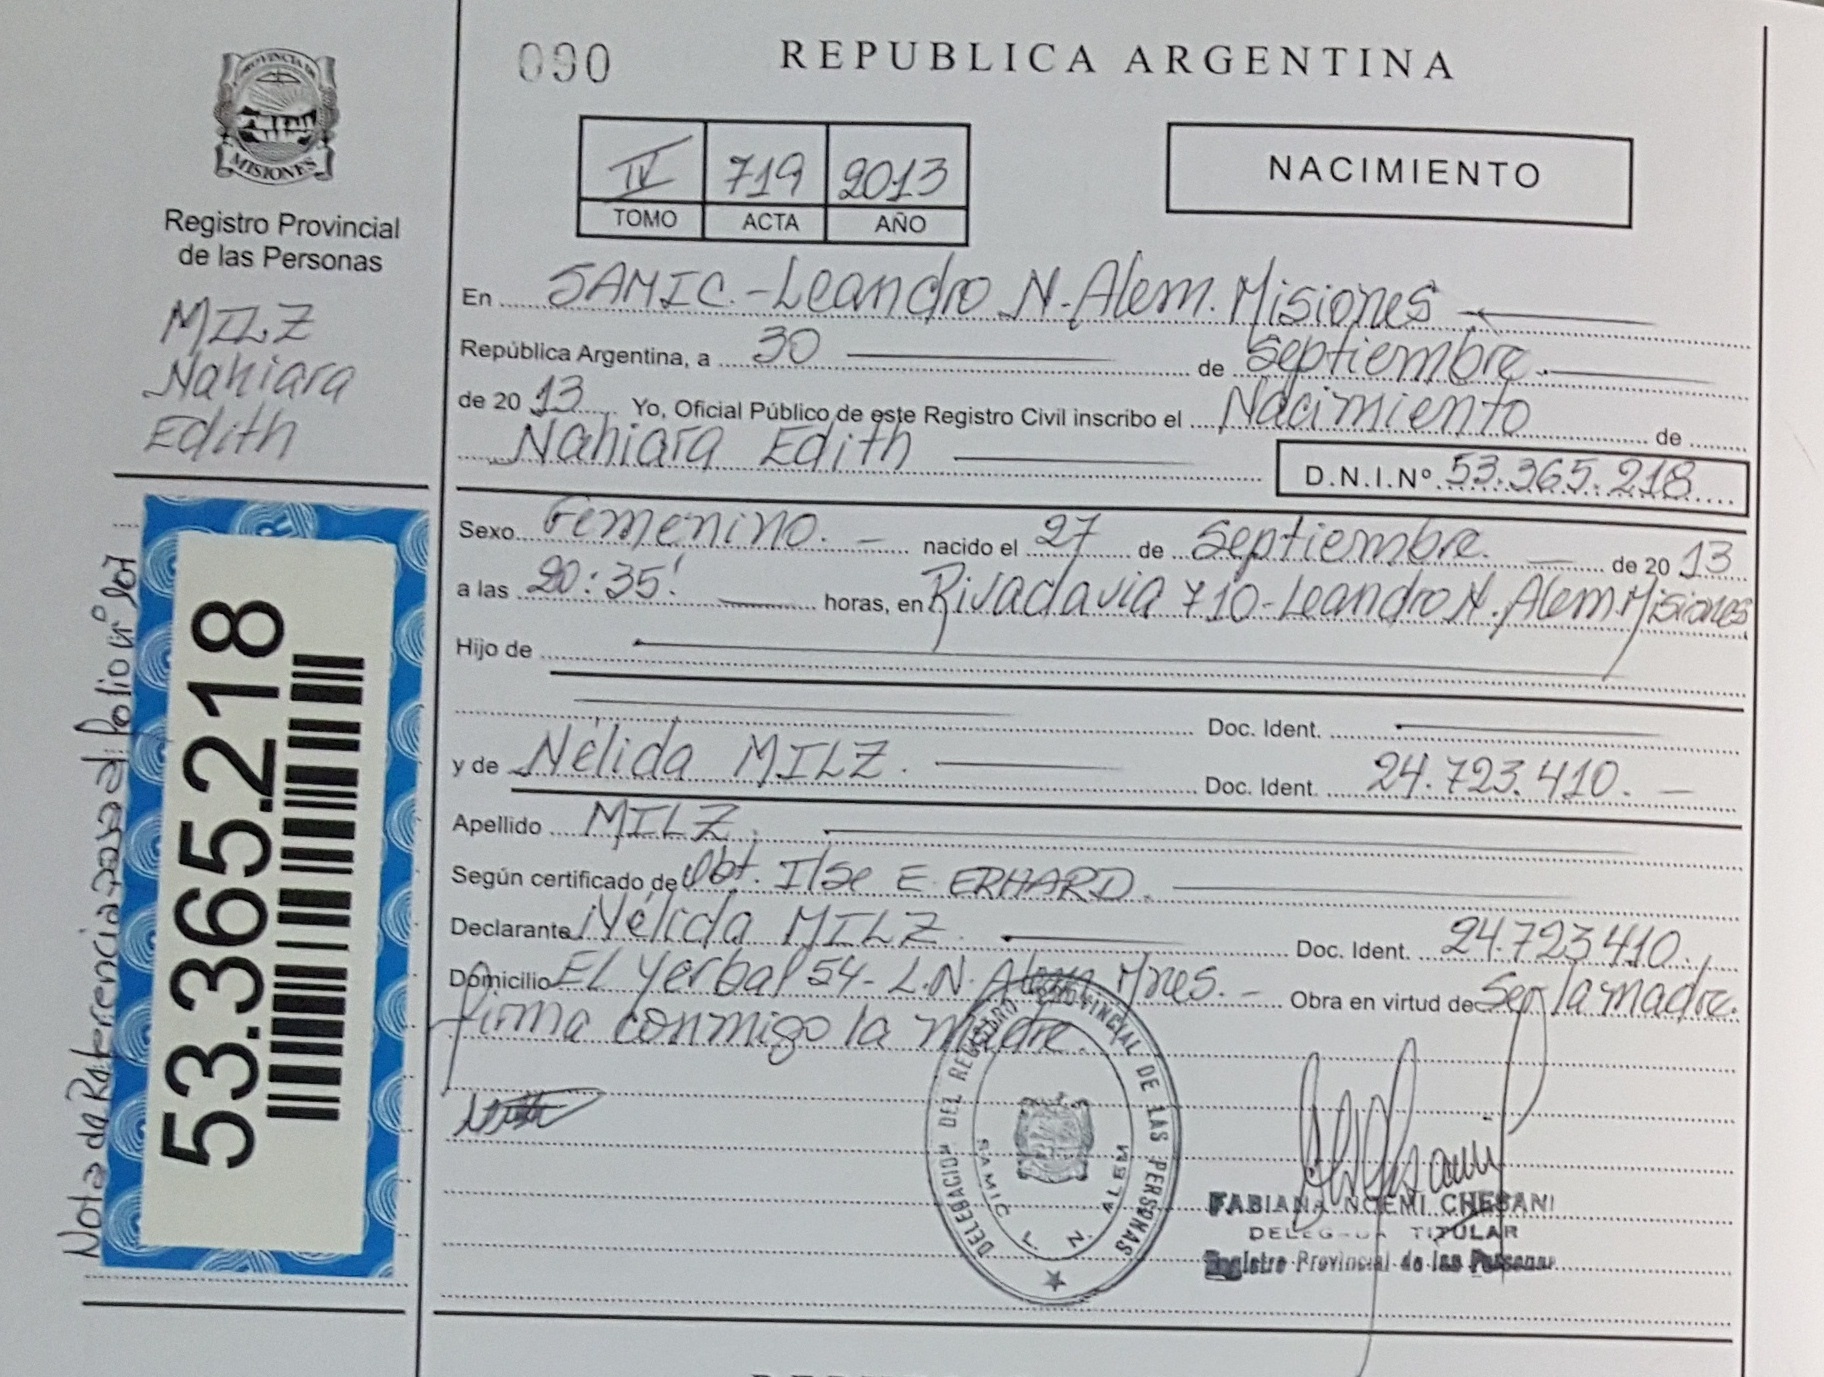 PROVINCIA DE
MISIONES
Registro Provincial
de las Personas
MILZ
Nahiara
Edith
53.365.218
Nota de Referencia al Folio nº
090
REPUBLICA ARGENTINA
IV 719 2013
TOMO ACTA AÑO
NACIMIENTO
En SAMIC.-Leandro N. Alem. Misiones
República Argentina, a 30 de Septiembre.
de 2013 Yo, Oficial Público de este Registro Civil inscribo el Nacimiento de
Nahiara Edith
D.N.I.Nº 53.365.218
Sexo Femenino. nacido el 27 de Septiembre. de 2013
a las 20:35' horas, en Rivadavia 710-Leandro N. Alem. Misiones
Hijo de
Doc. Ident.
y de Nélida MILZ. Doc. Ident. 24.723.410.
Apellido MILZ.
Según certificado de Obt. Ilse E. ERHARD.
Declarante Nélida MILZ. Doc. Ident. 24.723.410.
Domicilio El Yerbal 54- L.N. Alem Mnes. Obra en virtud de Ser la madre.
firma conmigo la madre.
DELEGACION DEL REGISTRO PROVINCIAL DE LAS PERSONAS
SAMIC L. N. ALEM
FABIANA NOEMI CHESANI
DELEGADA TITULAR
Registro Provincial de las Personas